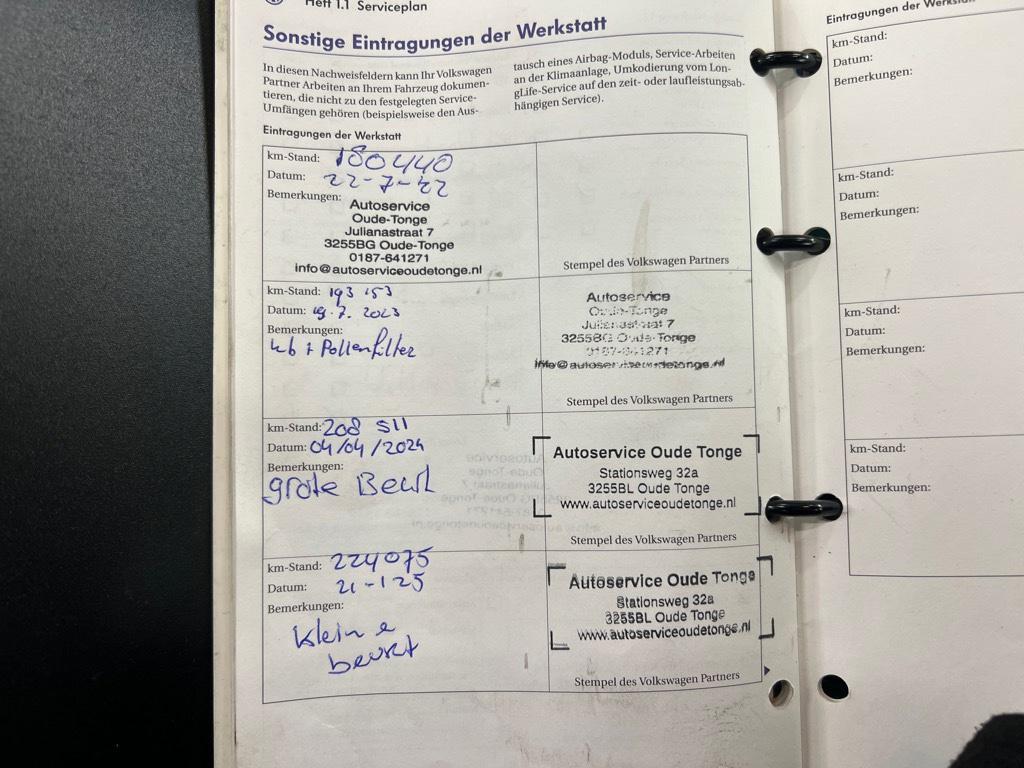 Heft 1.1 Serviceplan
Sonstige Eintragungen der Werkstatt
In diesen Nachweisfeldern kann Ihr Volkswagen
Partner Arbeiten an Ihrem Fahrzeug dokumen-
tieren, die nicht zu den festgelegten Service-
Umfängen gehören (beispielsweise den Aus-
tausch eines Airbag-Moduls, Service-Arbeiten
an der Klimaanlage, Umkodierung vom Lon-
gLife-Service auf den zeit- oder laufleistungsab-
hängigen Service).
Eintragungen der Werkstatt
km-Stand: 180440
Datum: 22-7-22
Bemerkungen:
Autoservice
Oude-Tonge
Julianastraat 7
3255BG Oude-Tonge
0187-641271
info@autoserviceoudetonge.nl
Stempel des Volkswagen Partners
km-Stand: 193 153
Datum: 19.7. 2023
Bemerkungen:
+ Pollenfilter
Autoservice
Oude-Tonge
Julianastraat 7
3255BG Oude-Tonge
0187-641271
info@autoserviceoudetonge.nl
Stempel des Volkswagen Partners
km-Stand: 208 511
Datum: 04/04/2024
Bemerkungen:
grote Beurt
Autoservice Oude Tonge
Stationsweg 32a
3255BL Oude Tonge
www.autoserviceoudetonge.nl
Stempel des Volkswagen Partners
km-Stand: 224075
Datum: 21-125
Bemerkungen:
Kleine
beurt
Autoservice Oude Tonge
Stationsweg 32a
3255BL Oude Tonge
www.autoserviceoudetonge.nl
Stempel des Volkswagen Partners
Eintragungen der
km-Stand:
Datum:
Bemerkungen:
km-Stand:
Datum:
Bemerkungen:
km-Stand:
Datum:
Bemerkungen:
km-Stand:
Datum:
Bemerkungen: